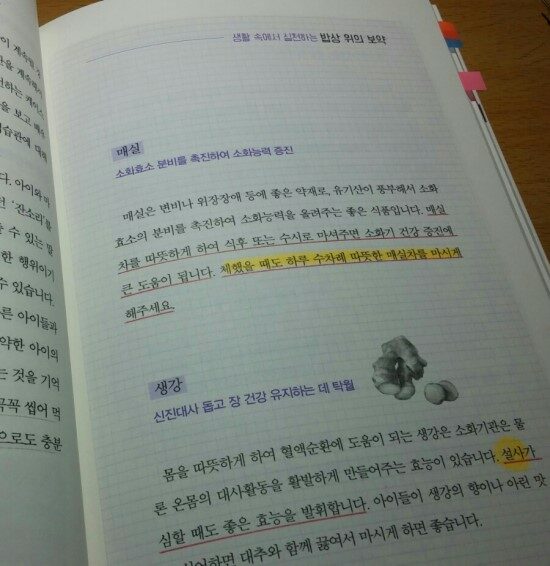 생활 속에서 실천하는 밥상 위의 보약
매실
소화효소 분비를 촉진하여 소화능력 증진
매실은 변비나 위장장애 등에 좋은 약재로, 유기산이 풍부해서 소화
효소의 분비를 촉진하여 소화능력을 올려주는 좋은 식품입니다. 매실
차를 따뜻하게 하여 식후 또는 수시로 마셔주면 소화기 건강 증진에
큰 도움이 됩니다. 체했을 때도 하루 수차례 따뜻한 매실차를 마시게
해주세요.
생강
신진대사 돕고 장 건강 유지하는 데 탁월
몸을 따뜻하게 하여 혈액순환에 도움이 되는 생강은 소화기관은 물
론 온몸의 대사활동을 활발하게 만들어주는 효능이 있습니다. 설사가
심할 때도 좋은 효능을 발휘합니다. 아이들이 생강의 향이나 아린 맛
하면 대추와 함께 끓여서 마시게 하면 좋습니다.
을 보고 배우
습관에 대해
다. 아이와 먹
던 '잔소리'를
수 있는 말
한 행위이기
수 있습니다.
른 아이들과
약한 아이의
는 것을 기억
꼭꼭 씹어 먹
으로도 충분